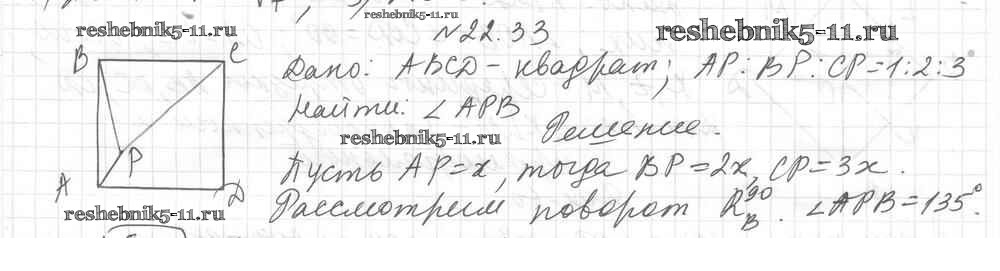 reshebnik5-11.ru
reshebnik5-11.ru
№22.33
reshebnik5-11.ru
B
C
Дано: ABCD - квадрат; AP:BP:CP=1:2:3
Найти: ∠APB
reshebnik5-11.ru
Решение.
P
Пусть AP=x, тогда BP=2x, CP=3x.
A
D
reshebnik5-11.ru
Рассмотрим поворот R_B^90. ∠APB=135°.